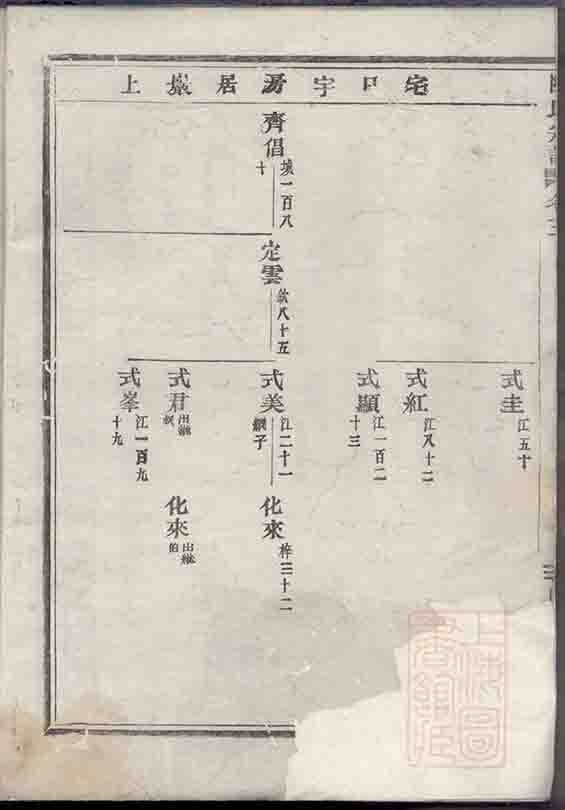 宅口宇房居嚴上
式圭
江五十
式紅
江八十二
式顯
江一百二
十三
齊倡
填一百八
十
定雲
欽八十五
式美
江二十一
繼子
化來
梓三十二
式君
出繼
化來
出繼
伯
式峯
江一百九
十九
上海圖
書館臧